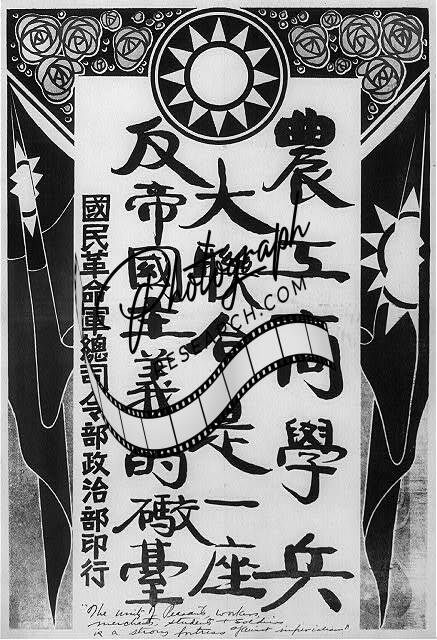 農工商學兵
大聯合是一座
反帝國主義的礮臺
國民革命軍總司令部政治部印行
Photograph
RESEARCH.COM
"The unity of Peasants, workers,
merchants, students + soldiers
is a strong fortress against imperialism"